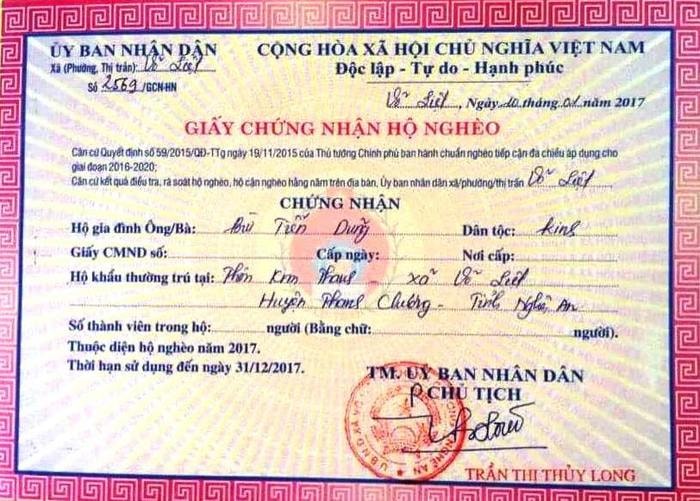 ỦY BAN NHÂN DÂN
CỘNG HÒA XÃ HỘI CHỦ NGHĨA VIỆT NAM
Xã (Phường, Thị trấn): Võ Liệt
Độc lập - Tự do - Hạnh phúc
Số 2569 /GCN-HN
Võ Liệt, Ngày 10 tháng 01 năm 2017
GIẤY CHỨNG NHẬN HỘ NGHÈO
Căn cứ Quyết định số 59/2015/QĐ-TTg ngày 19/11/2015 của Thủ tướng Chính phủ ban hành chuẩn nghèo tiếp cận đa chiều áp dụng cho
giai đoạn 2016-2020;
Căn cứ kết quả điều tra, rà soát hộ nghèo, hộ cận nghèo hằng năm trên địa bàn, Ủy ban nhân dân xã/phường/thị trấn Võ Liệt
CHỨNG NHẬN
Hộ gia đình Ông/Bà: Bùi Tiến Dũng Dân tộc: Kinh
Giấy CMND số: Cấp ngày: Nơi cấp:
Hộ khẩu thường trú tại: Thôn Kim Thanh - xã Võ Liệt
Huyện Thanh Chương - Tỉnh Nghệ An
Số thành viên trong hộ: người (Bằng chữ: người).
Thuộc diện hộ nghèo năm 2017.
Thời hạn sử dụng đến ngày 31/12/2017.
TM. UỶ BAN NHÂN DÂN
P CHỦ TỊCH
TRẦN THỊ THỦY LONG